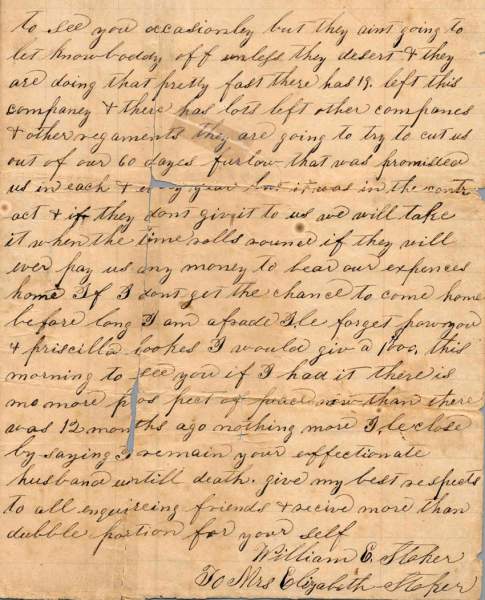 to see you occasionley but they aint going to
let knowboddy off unless they desert & they
are doing that pretty fast there has 19. left this
companey & there has lots left other companes
& other regaments they are going to try to cut us
out of our 60 dayes furlow that was promissed
us in each & every year but it was in the contr
act & if they dont give it to us we will take
it when the time rolls round if they will
ever pay us any money to bear our expences
home If I dont get the chance to come home
before long I am afrade I,le forget how you
& priscilla lookes I would giv a 1000, this
morning to see you if I had it there is
no more pros pect of peace now than there
was 12 months ago nothing more I,le close
by saying I remain your effectionate
husband untill death. give my best respects
to all enquireing friends & recive more than
dubble portion for your self
William E. Stoker
To Mrs Elizabeth Stoker